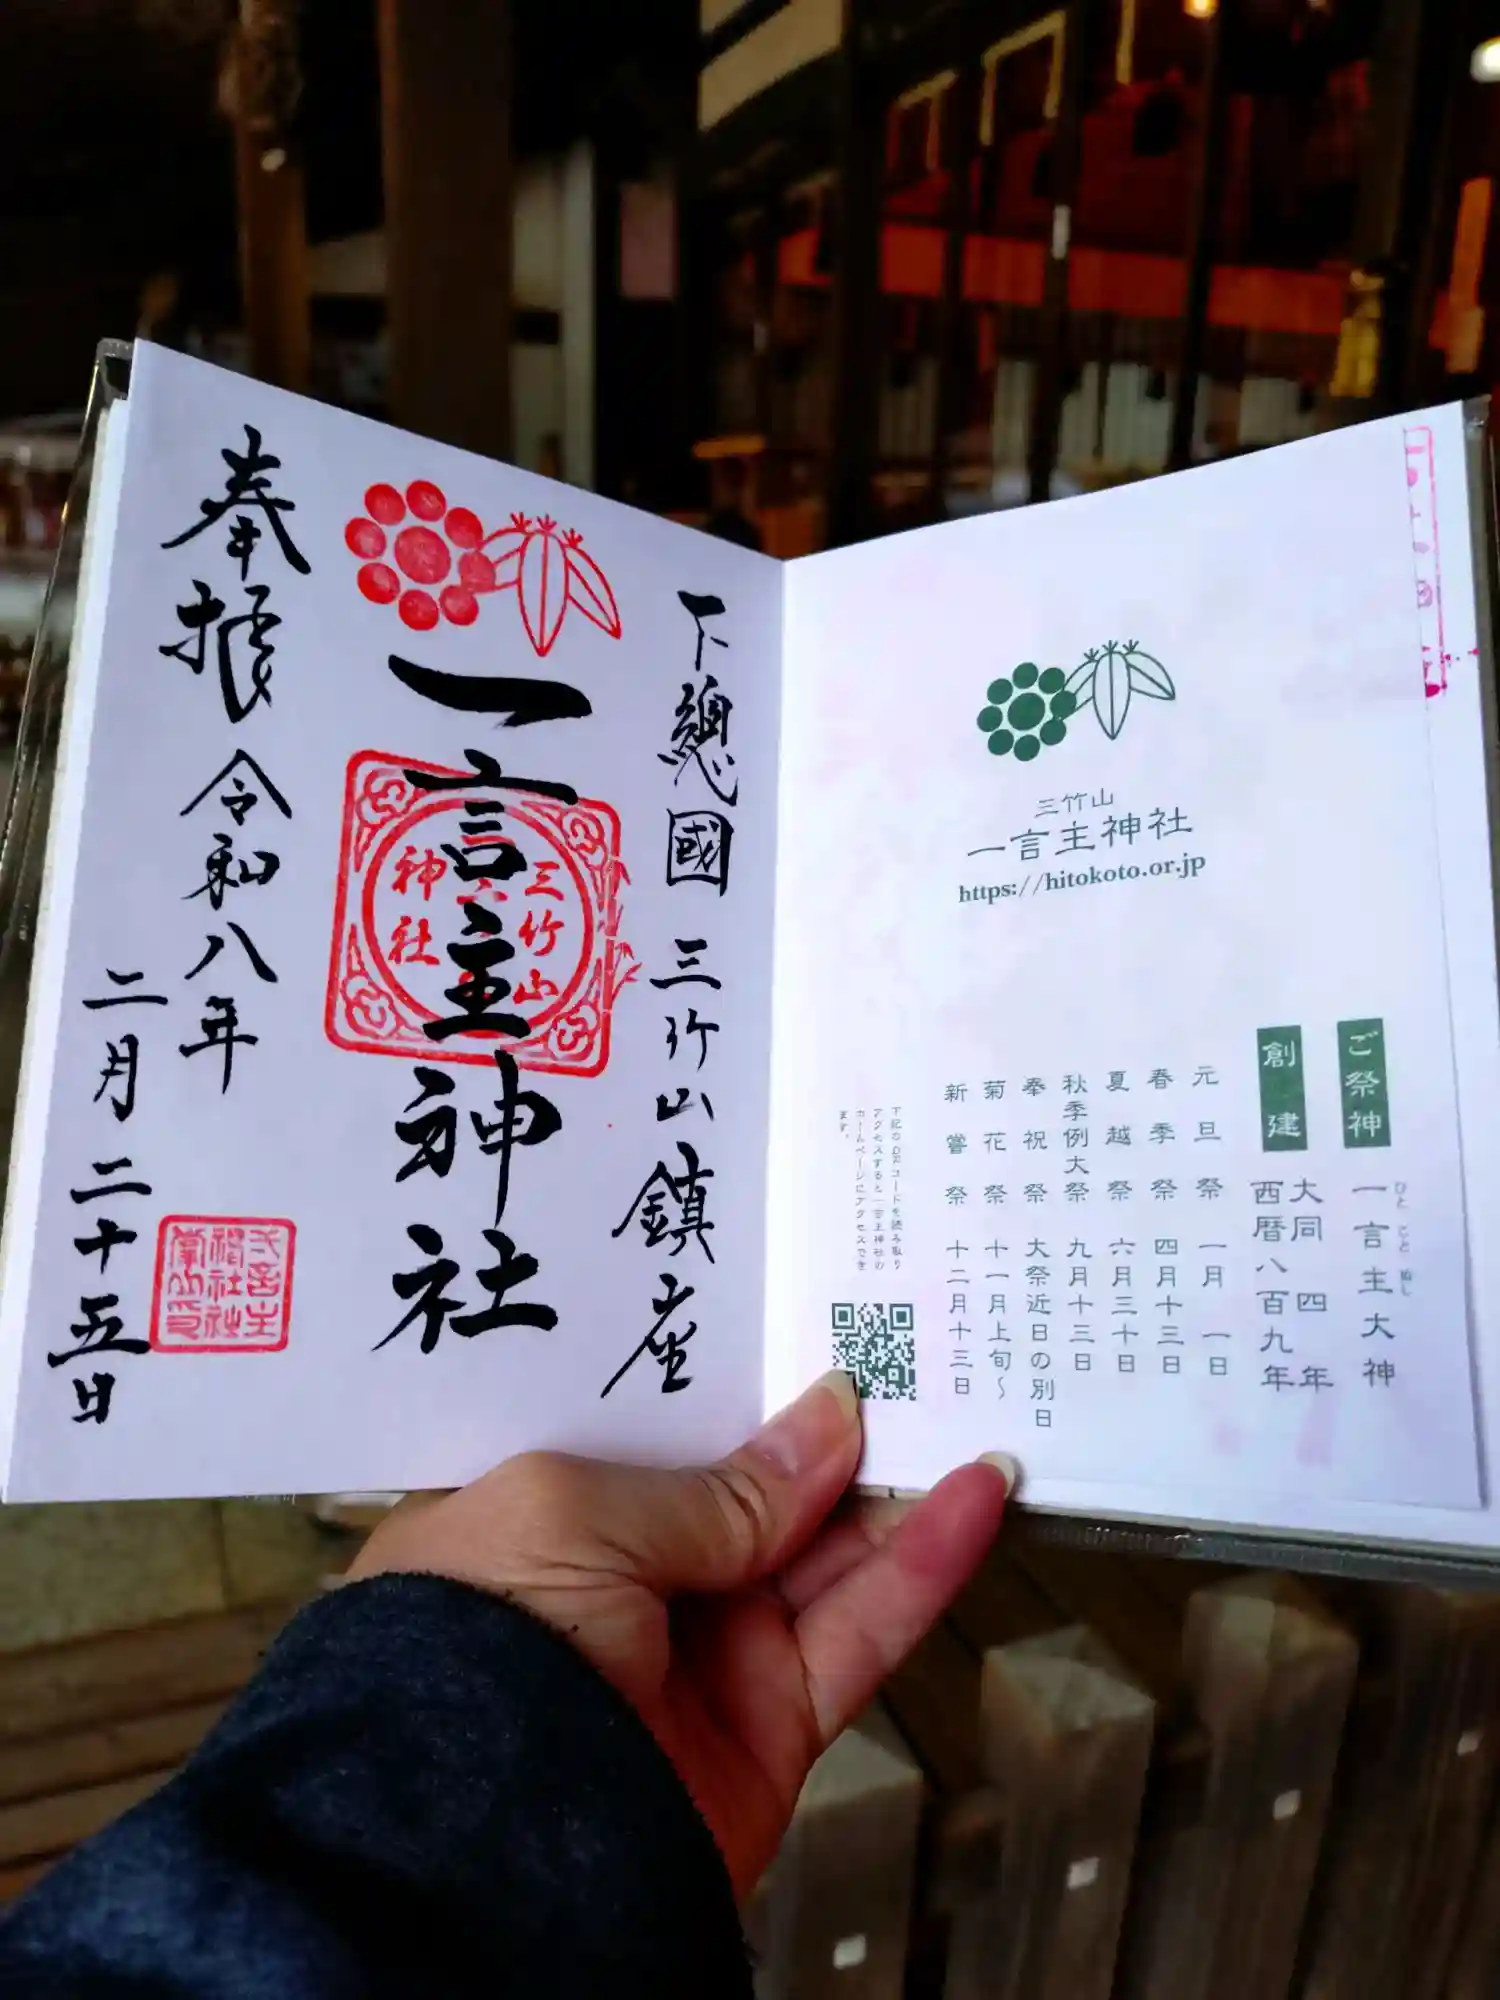 三竹山
一言主神社
https://hitokoto.or.jp
ご祭神
一言主大神
ひとことぬし
創建
大同四年
西暦八百九年
元旦祭 一月一日
春季祭 四月十三日
夏越祭 六月三十日
秋季例大祭 九月十三日
奉祝祭 大祭近日の別日
菊花祭 十一月上旬～
新嘗祭 十二月十三日
下記のQRコードを読み取り
アクセスすると一言主神社の
ホームページにアクセスでき
ます。
下總國 三竹山 鎮座
一言主神社
三竹山
神社
奉拝
令和八年
二月二十五日